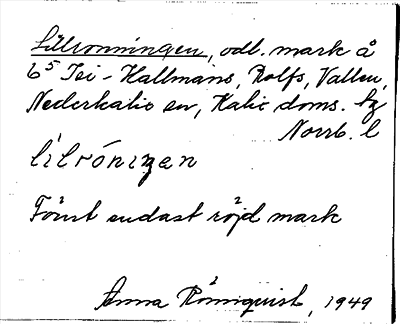 Lillrönningen, odl. mark å
6⁵ Tei-Hallmans, Rolfs, Vallen,
Nederkalix sn, Kalix doms. hg
Norrb. l
lilróningen
Först endast röjd mark
Anna Rönnquist, 1949